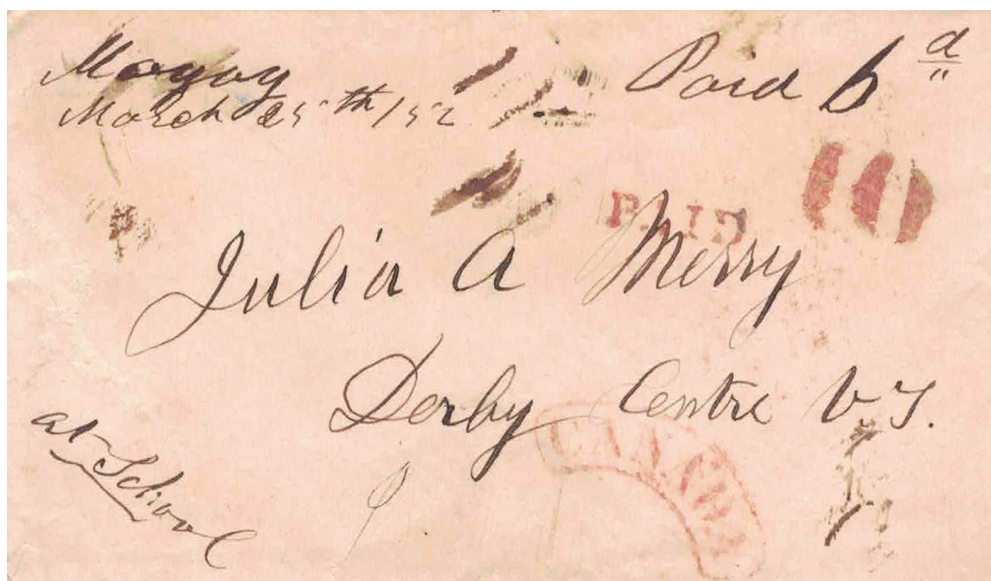 Magog
March 25th /52
Paid 6d
PAID
10
Julia A Merry
Derby Centre V.T.
CANADA
at School